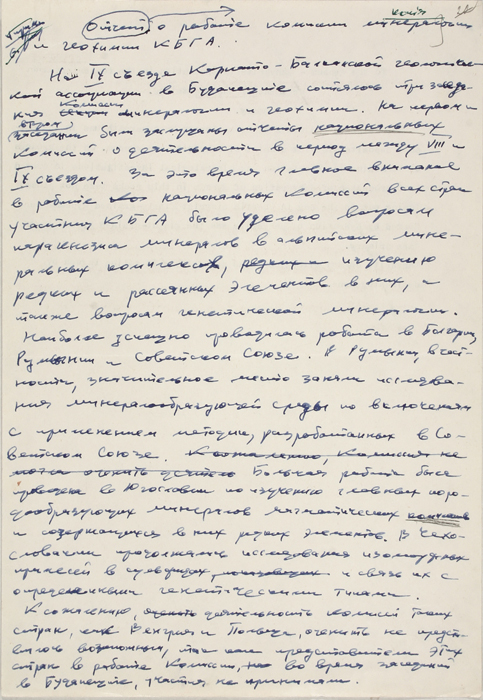 Отчет о работе комиссии минералогии
и геохимии КБГА.
На IX съезде Карпато-Балканской геологичес-
кой ассоциации в Будапеште состоялись три заседа-
ния Комиссии минералогии и геохимии. На первом
заседании были заслушаны отчеты национальных
комиссий о деятельности в период между VIII и
IX съездом. За это время главное внимание
в работе национальных комиссий всех стран
участниц КБГА было уделено вопросам
парагенезиса минералов в альпийских мине-
ральных комплексах, изучению
редких и рассеянных элементов в них, а
также вопросам генетической минералогии.
Наиболее успешно проводилась работа в Болгарии,
Румынии и Советском Союзе. В Румынии, в част-
ности, значительное место заняли исследова-
ния минералообразующей среды по включениям
с применением методик, разработанных в Со-
ветском Союзе. К сожалению, Комиссия не
может оценить Большая работа была
проведена в Югославии по изучению главных поро-
дообразующих минералов магматических
и содержащихся в них редких элементов. В Чехо-
словакии продолжались исследования изоморфных
примесей в и связь их с
определенными генетическими типами.
К сожалению, оценить деятельность комиссий таких
стран, как Венгрия и Польша, оценить не предста-
вилось возможным, так как представители этих
стран в работе Комиссии, во время заседаний
в Будапеште, участия не принимали.